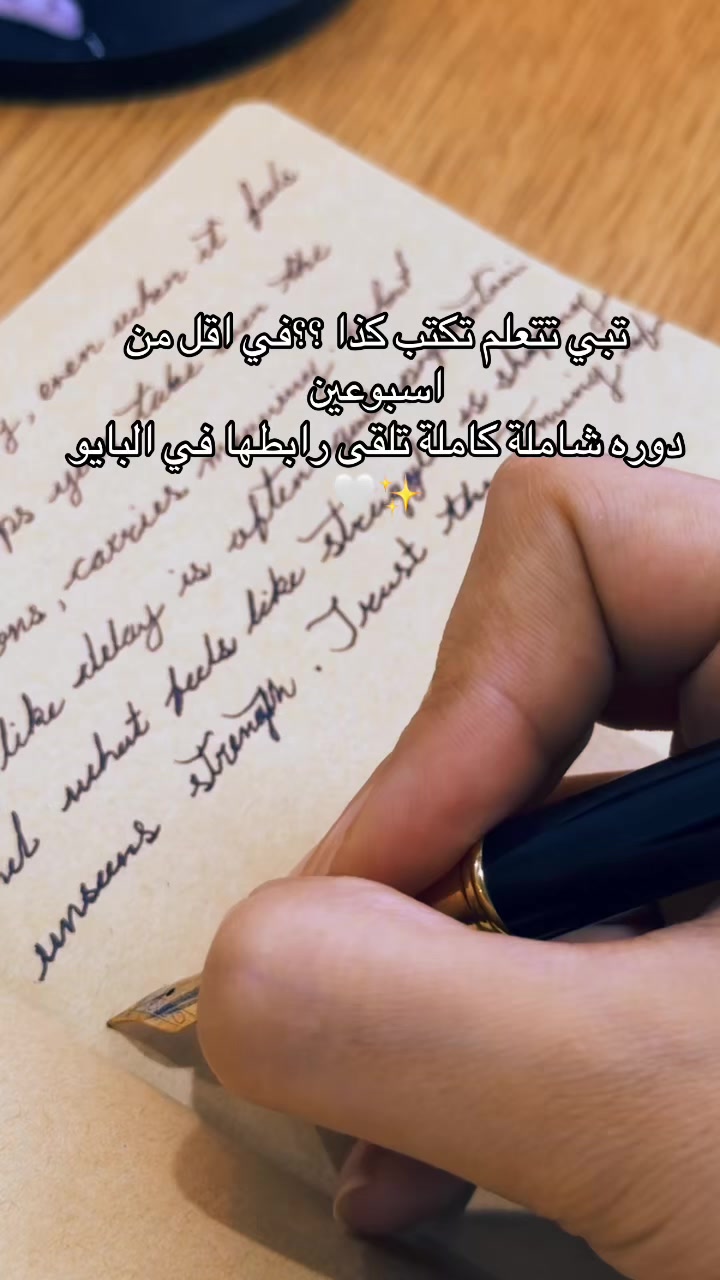 تبي تتعلم تكتب كذا ؟؟في اقل من
اسبوعين
دوره شاملة كاملة تلقى رابطها في البايو
🤍✨
, even when it feels
ps you take than the
ons, carries meaning.
like delay is often
what feels like struggle is shaping
unseens strength. Trust the